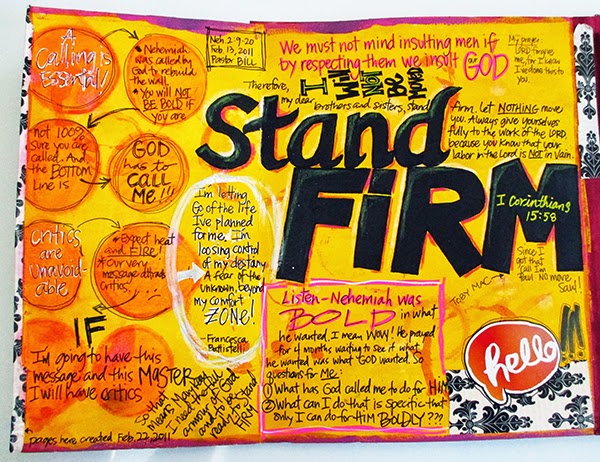 A
Calling is
ESSENTIAL!
• Nehemiah
was called by
God to rebuild
the wall.
• You will NOT
BE BOLD if
you are
not 100%
sure you are
called. And
the BOTTOM
Line is
GOD
has to
CALL
ME!!!
CRitics
are
UNAVOID-
able
• Expect heat
and FIRE!
• Our very
message attracts
critics!
IF
I'm going to have this
message and this MASTER
I will have critics
pages here created Feb. 22, 2011
Neh. 2:9-20
Feb. 13, 2011
Pastor BILL
We must not mind insulting men if
by respecting them we insult our GOD
My prayer:
LORD forgive
me, for I know
I've done this to
you.
I
Will
Not
Be
Therefore,
my dear
brothers and sisters, stand
Stand
FiRM
firm. let NOTHING move
you. Always give yourselves
fully to the work of the LORD,
because you know that your
labor in the Lord is NOT in vain.
I Corinthians
15:58
I'm letting
Go of the life
I've planned
for me. I'm
loosing control
of my destany
A fear of the
unknown, beyond
my comfort
ZONE!
-Francesca
Battistelli
So that
means Monkey
I need the full
armour of God
and to be
ready to Stand
Firm
Listen-Nehemiah was
BOLD in what
he wanted. I mean WOW! He prayed
for 4 months waiting to see if what
he wanted was what GOD wanted. So
questions for Me:
① What has God called me to do for HIM
② What can I do that is specific that
only I can do for HIM BOLDLY???
TOBY MAC
Since I
got that
call I'm
Saul NO more
hello